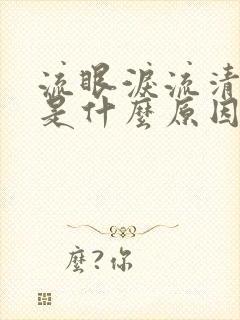 流眼淚流清
是什麼原因
麼?你